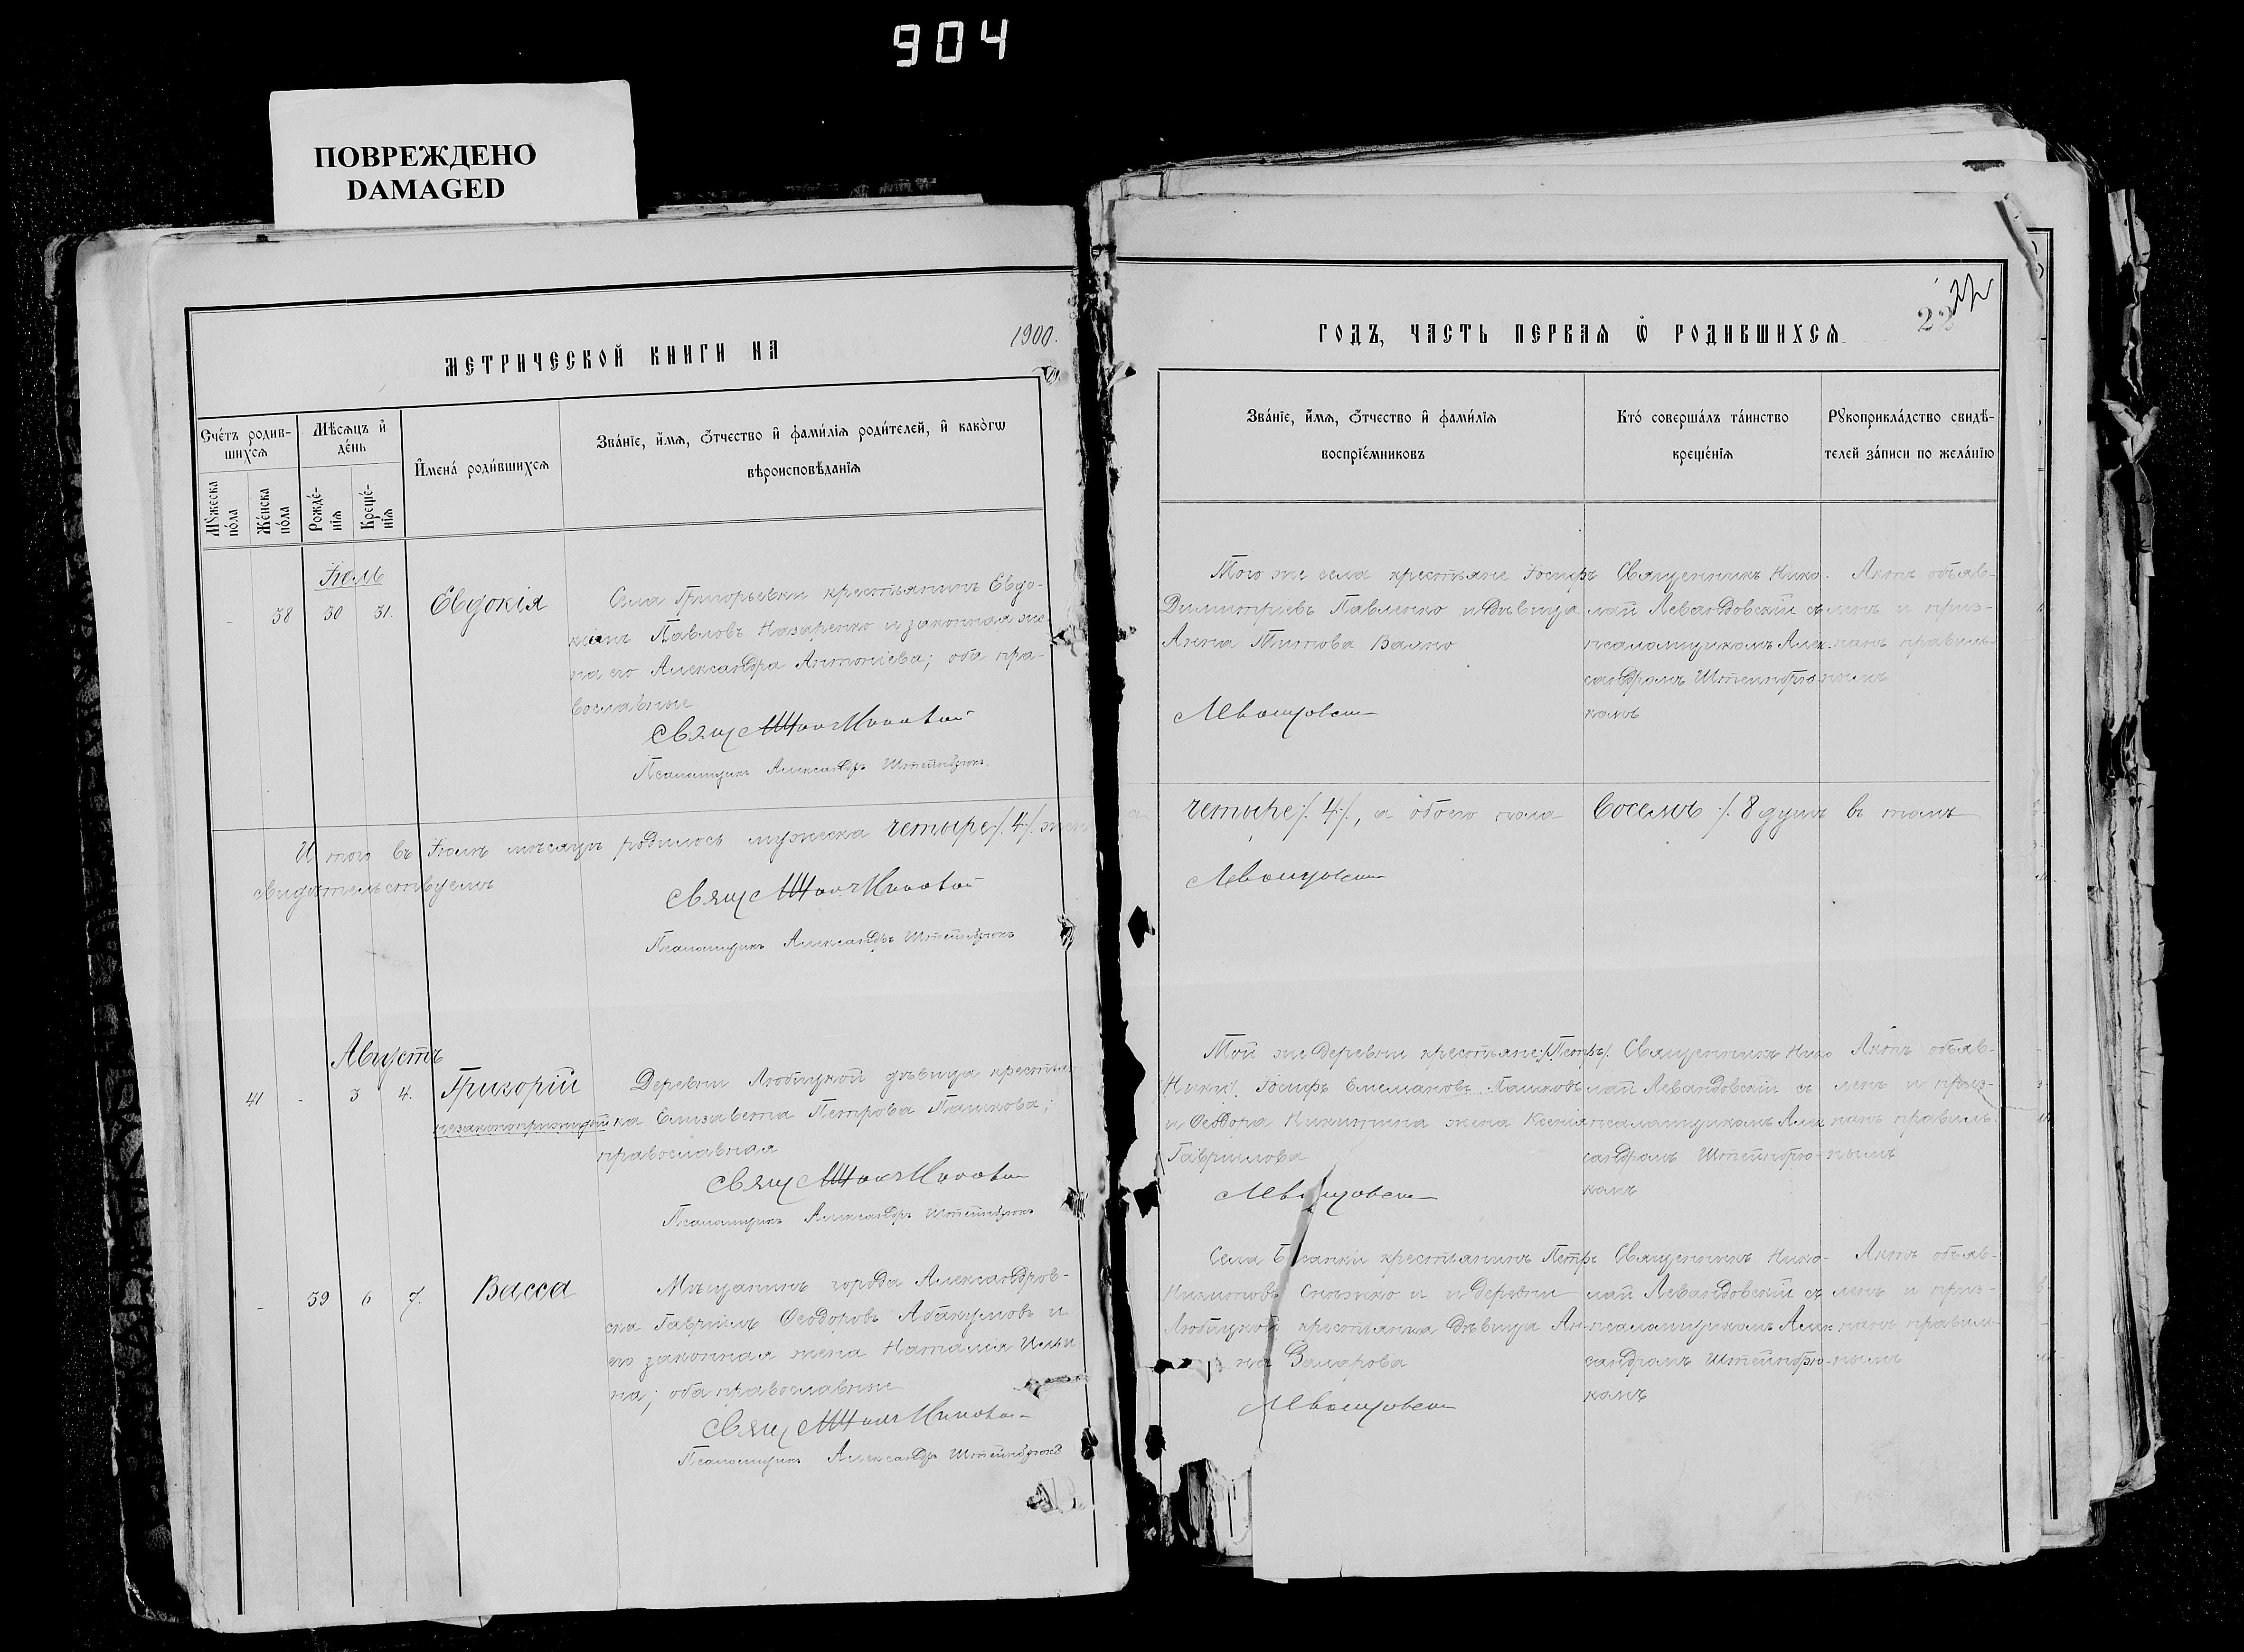 904
ПОВРЕЖДЕНО
DAMAGED
МЕТРИЧЕСКОЙ КНИГИ НА 1900.
Счетъ родив-
шихся
Мѣсяцъ и
день
Мужеска
пола
Женска
пола
Рожде-
нія
Креще-
нія
Имена родившихся
Званіе, имя, ѿтчество и фамилія родителей, и какогѡ
вѣроисповѣданія
Іюль
- 38 30 31. Евдокія
Села Григорьевки крестьянинъ Евдо-
кимъ Павловъ Назаренко и законная же-
на его Александра Антоніева; оба пра-
вославные
Свящ
Псаломщикъ Александръ Штейнбрюкъ
Итого въ Іюлѣ мѣсяцѣ родилось мужеска четыре /.4/. жен
свидѣтельствуемъ
Свящ
Псаломщикъ Александръ Штейнбрюкъ
Августъ
41 - 3 4. Григорій
незаконнорожденный
Деревни Любицкой дѣвица крестья-
нка Елизавета Петрова Пашкова;
православная
Свящ
Псаломщикъ Александръ Штейнбрюкъ
- 39 6 7. Васса
Мѣщанинъ города Александров-
ска Гавріилъ Ѳеодоровъ Абакумовъ и
его законная жена Наталія Ильи
на; оба православные
Свящ
Псаломщикъ Александръ Штейнбрюкъ
ГОДЪ, ЧАСТЬ ПЕРВАЯ Ѡ РОДИВШИХСЯ
22
Званіе, имя, ѿтчество и фамилія
воспріемниковъ
Кто совершалъ таинство
крещенія
Рукоприкладство свидѣ-
телей записи по желанію
Того же села крестьяне Іосифъ
Димитріевъ Павленко и дѣвица
Анна Титова
Священникъ Нико-
лай Левандовскій съ
псаломщикомъ Алек-
сандромъ Штейнбрю-
комъ
Актъ объяв-
ленъ и приз-
нанъ правиль-
нымъ
четыре /.4/., а обоего пола восемь /. 8 душъ въ томъ
Той же деревни крестьяне
Іосифъ Пашковъ
и Ѳеодора Никитина жена Ксенія
Гавриилова
Священникъ Нико
лай Левандовскій съ
псаломщикомъ Алек
сандромъ Штейнбрю-
комъ
Актъ объяв-
ленъ и приз-
нанъ правиль-
нымъ
Села крестьянинъ Петръ
и деревни
Любицкой крестьянка дѣвица Ан-
на
Священникъ Нико-
лай Левандовскій съ
псаломщикомъ Алек
сандромъ Штейнбрю-
комъ
Актъ объяв-
ленъ и приз-
нанъ правиль-
нымъ